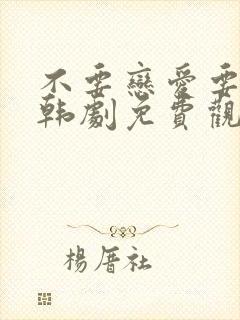 不要戀愛要
韩劇免費觀
楊厝社